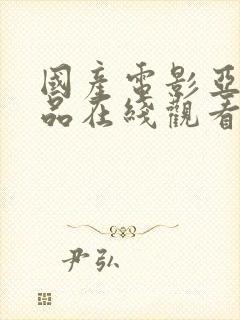 國產電影亞
品在綫觀看
尹弘